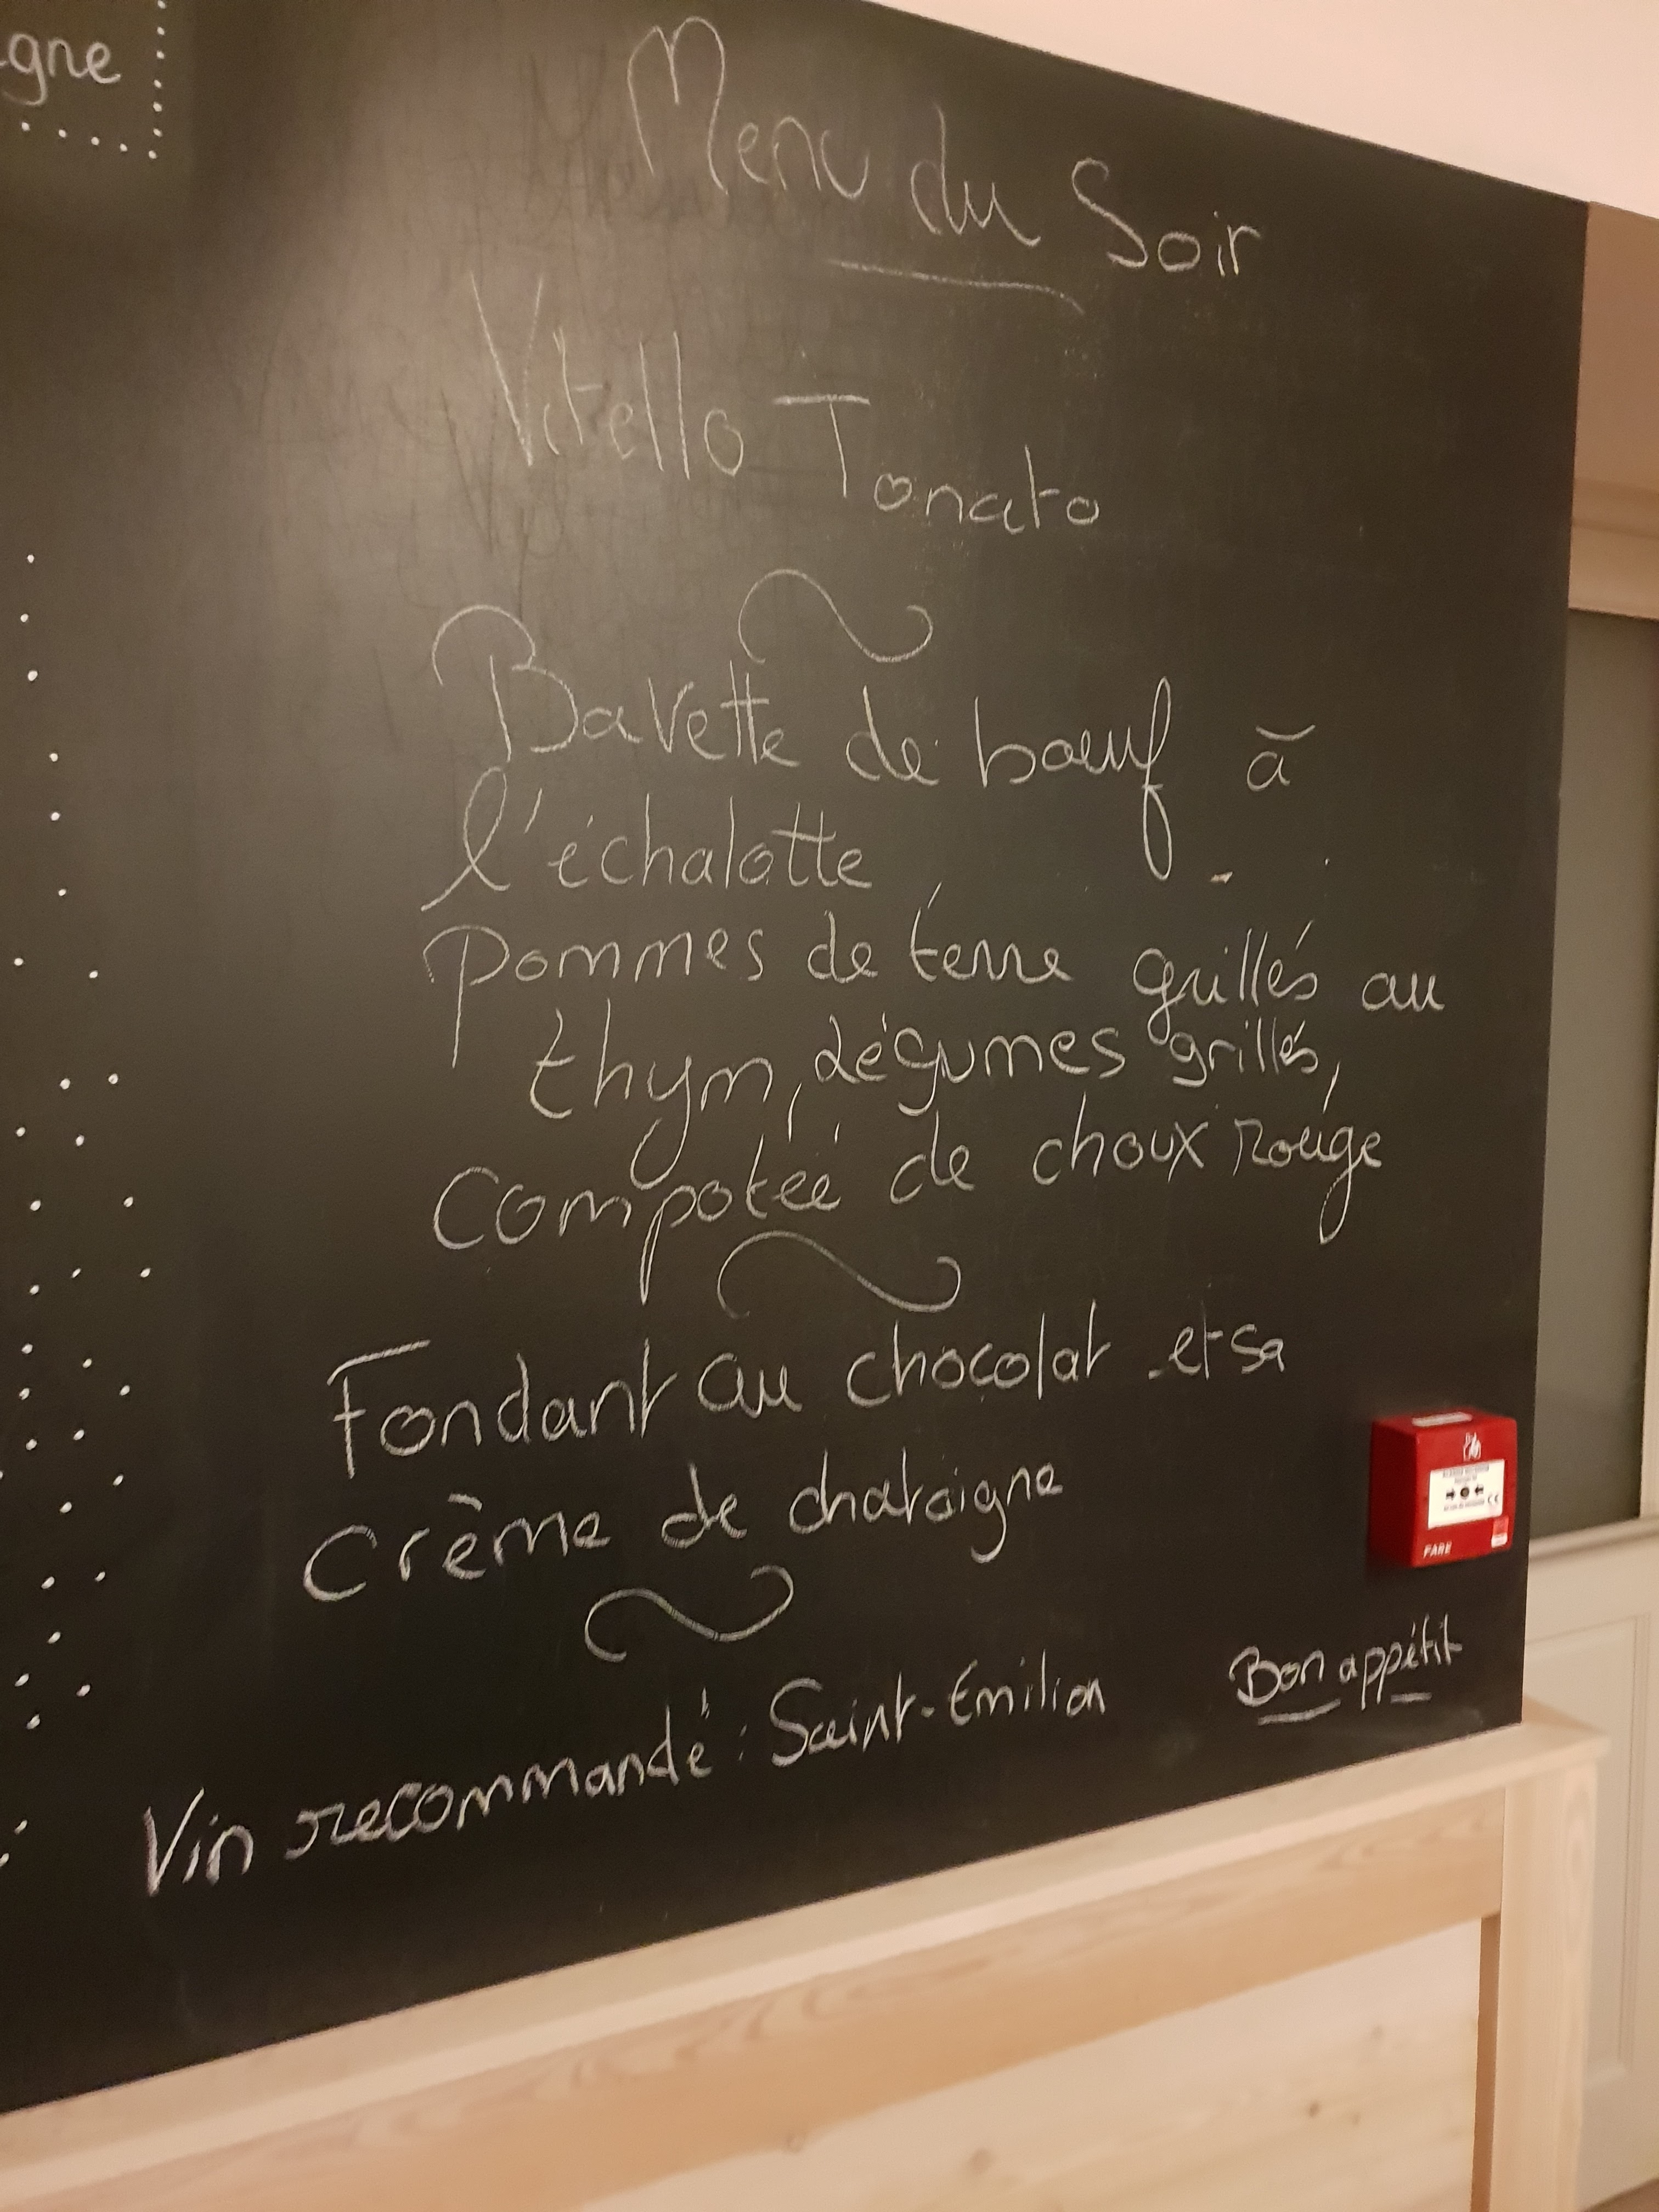 gne
Menu du Soir
Vitello Tonato
Bavette de bœuf à
l'échalotte
Pommes de terre grillés au
thym, légumes grillés,
Compotée de choux rouge
Fondant au chocolat et sa
Crème de chataigne
Vin recommandé : Saint-Emilion
Bon appétit
FARE